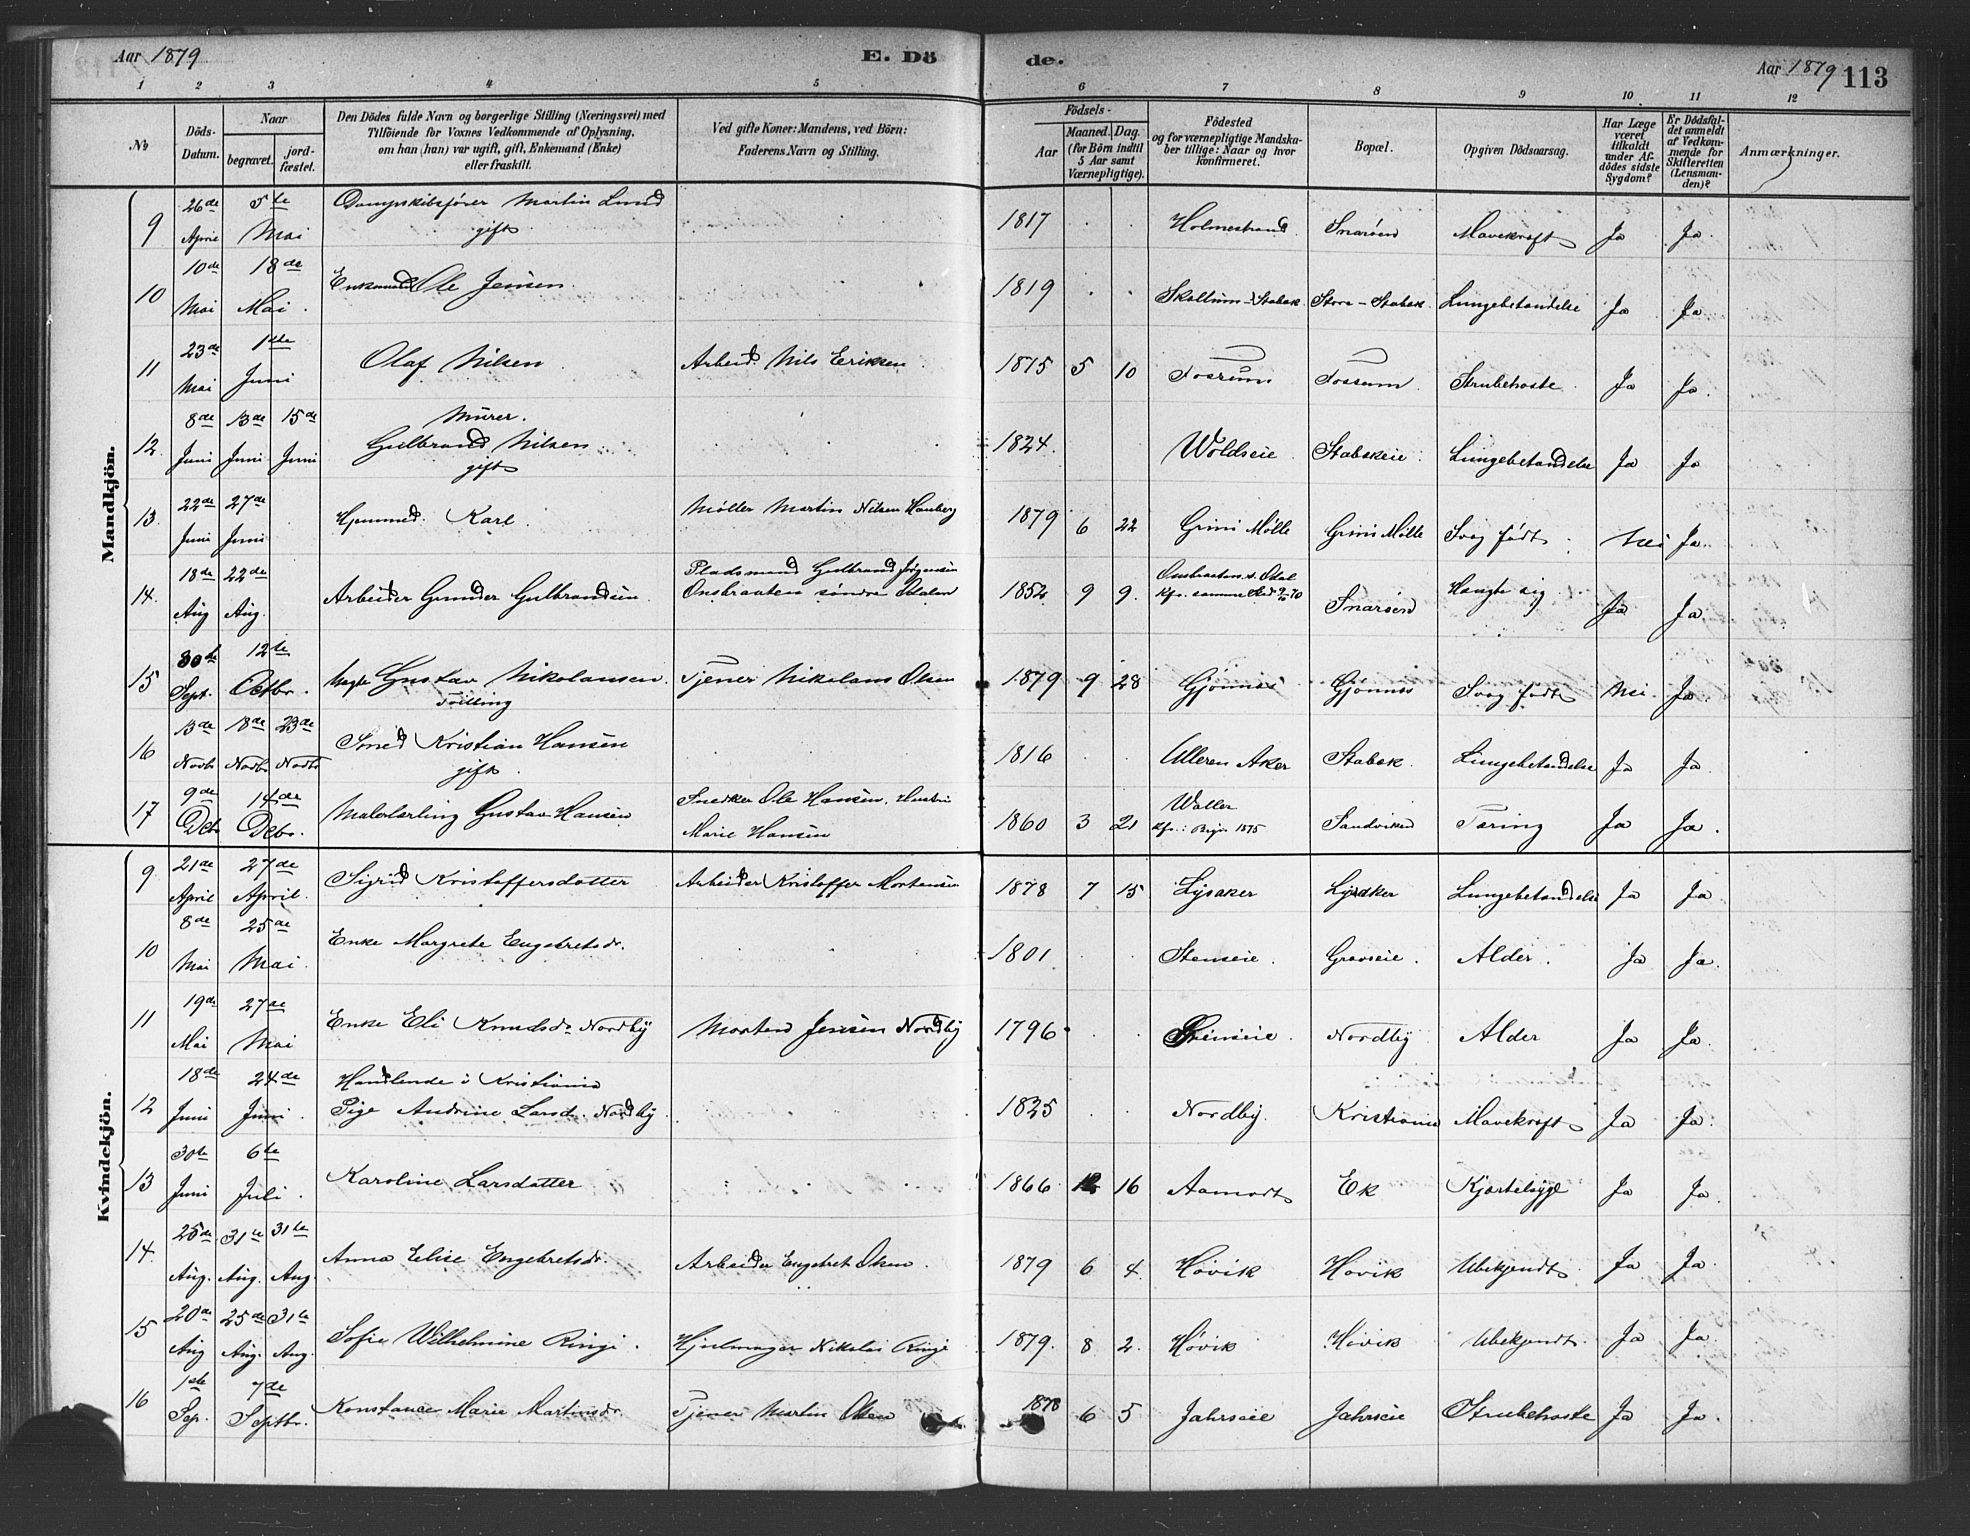 Aar 1879 E. Dö
de. Aar 1879 113
1 2 3 4 5 6 7 8 9 10 11 12
No
Döds-
Datum.
Naar
begravet.
jord-
fæstet.
Den Dödes fulde Navn og borgerlige Stilling (Næringsvei) med
Tilföiende for Voxnes Vedkommende af Oplysning,
om han (hun) var ugift, gift, Enkemand (Enke)
eller fraskilt.
Ved gifte Koner: Mandens, ved Börn:
Faderens Navn og Stilling.
Födsels-
Aar
Maaned. Dag.
(for Börn indtil
5 Aar samt
Værnepligtige).
Födested
og for værnepligtige Mandska-
ber tillige: Naar og hvor
konfirmeret.
Bopæl.
Opgiven Dödsaarsag.
Har Læge
været
tilkaldt
under Af-
dödes sidste
Sygdom?
Er Dödsfal-
det anmeldt
af Vedkom-
mende for
Skifteretten
(Lensman-
den)?
Anmærkninger.
Mandkjön.
9 26de April 5te Mai Dampskibsfører Martin Lund gift 1817 Holmestrand Snarøen Mavekræft Ja Ja
10 10de Mai 18de Mai Enkemand Ole Jensen 1819 Skallum-Stabæk Store-Stabæk Lungebetændelse Ja Ja
11 23de Mai 1ste Juni Olaf Nilsen Arbeid. Nils Eriksen 1875 5 10 Fossum Fossum Strubehoste Ja Ja
12 8de Juni 13de Juni 15de Juni Murer. Gulbrand Nilsen gift 1824 Woldseie Stabækeie Lungebetændelse Ja Ja
13 22de Juni 27de Juni Hjemmed. Karl Møller Martin Nilsen Hauberg 1879 6 22 Grini Mølle Grini Mølle Svag født Nei Ja
14 18de Aug 22de Aug. Arbeider Gunder Gulbrandsen Pladsmand Gulbrand Jørgensen Onsbraaten søndre 1852 9 9 Kfr. samme Sted Snarøen Hængte sig Ja Ja
15 30te Sept. 12te Octbr. Gustav Nikolausen Tvilling Tjener Nikolaus Olsen 1879 9 28 Gjønnes Gjønnes Svag født Nei Ja
16 13de Novbr 18de Novbr 23de Novbr Smed Kristian Hansen gift 1816 Ulleren Aker Stabæk Lungebetændelse Ja Ja
17 9de Debr 14de Debr. Malerlærling Gustav Hansen Snedker Ole Hansen, Hustru Marie Hansen 1860 3 21 Waller Kfr.: Bryn 1875 Sandviken Tæring Ja Ja.
Kvindekjön.
9 21de April 27de April. Sigrid Kristoffersdatter Arbeider Kristoffer Mortensen 1878 7 15 Lysaker Lysaker Lungebetændelse Ja Ja
10 8de Mai 25de Mai Enke Margrete Engebretsdr. 1801 Stenseie Gravseie Alder Ja Ja.
11 19de Mai 27de Mai Enke Eli Knudsdr Nordby Morten Jensen Nordby 1796 Stenseie Nordby Alder Ja Ja
12 18de Juni 24de Juni Handlende i Kristiania Pige Andrine Larsd. Nordby 1825 Nordby Kristiania Mavekræft Ja Ja
13 30te Juni 6te Juli Karoline Larsdatter 1866 12 16 Aamodt Ek Hjertesyge Ja Ja
14 25de Aug. 31te Aug. 31te Aug. Anna Elise Engebretsdr. Arbeider Engebret Olsen 1879 6 4 Høvik Høvik Ubekjendt Ja Ja
15 20de Aug 25de Aug. 31te Aug. Sofie Wilhelmine Ringi Hjulmager Nikolai Ringi 1879 8 2 Høvik Høvik Ubekjendt Ja Ja
16 1ste Sep. 7de Septbr. Konstance Marie Martinsdr. Tjener Martin Olsen 1878 6 5 Jahrseie Jahrseie Strubehoste Ja Ja.